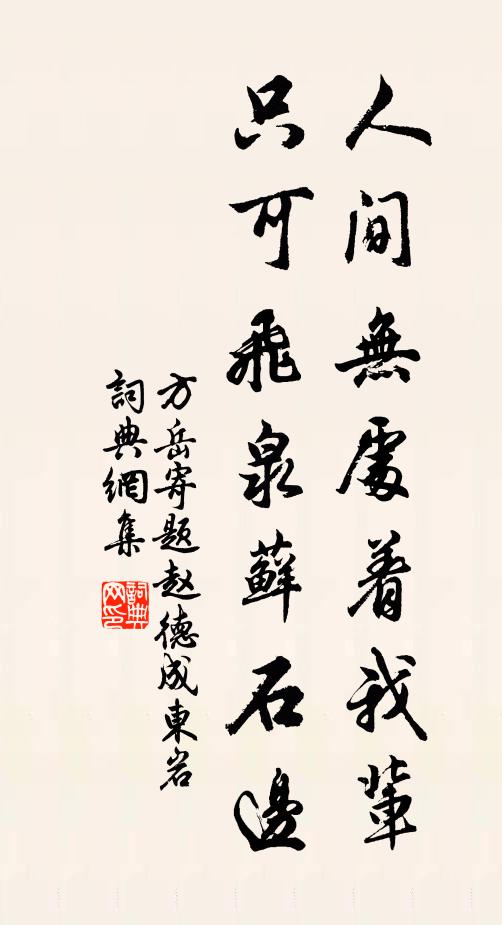 人間無處着我輩
只可飛泉蘚石邊
方岳寄題赵德成東岩
詞典網集
詞典网印